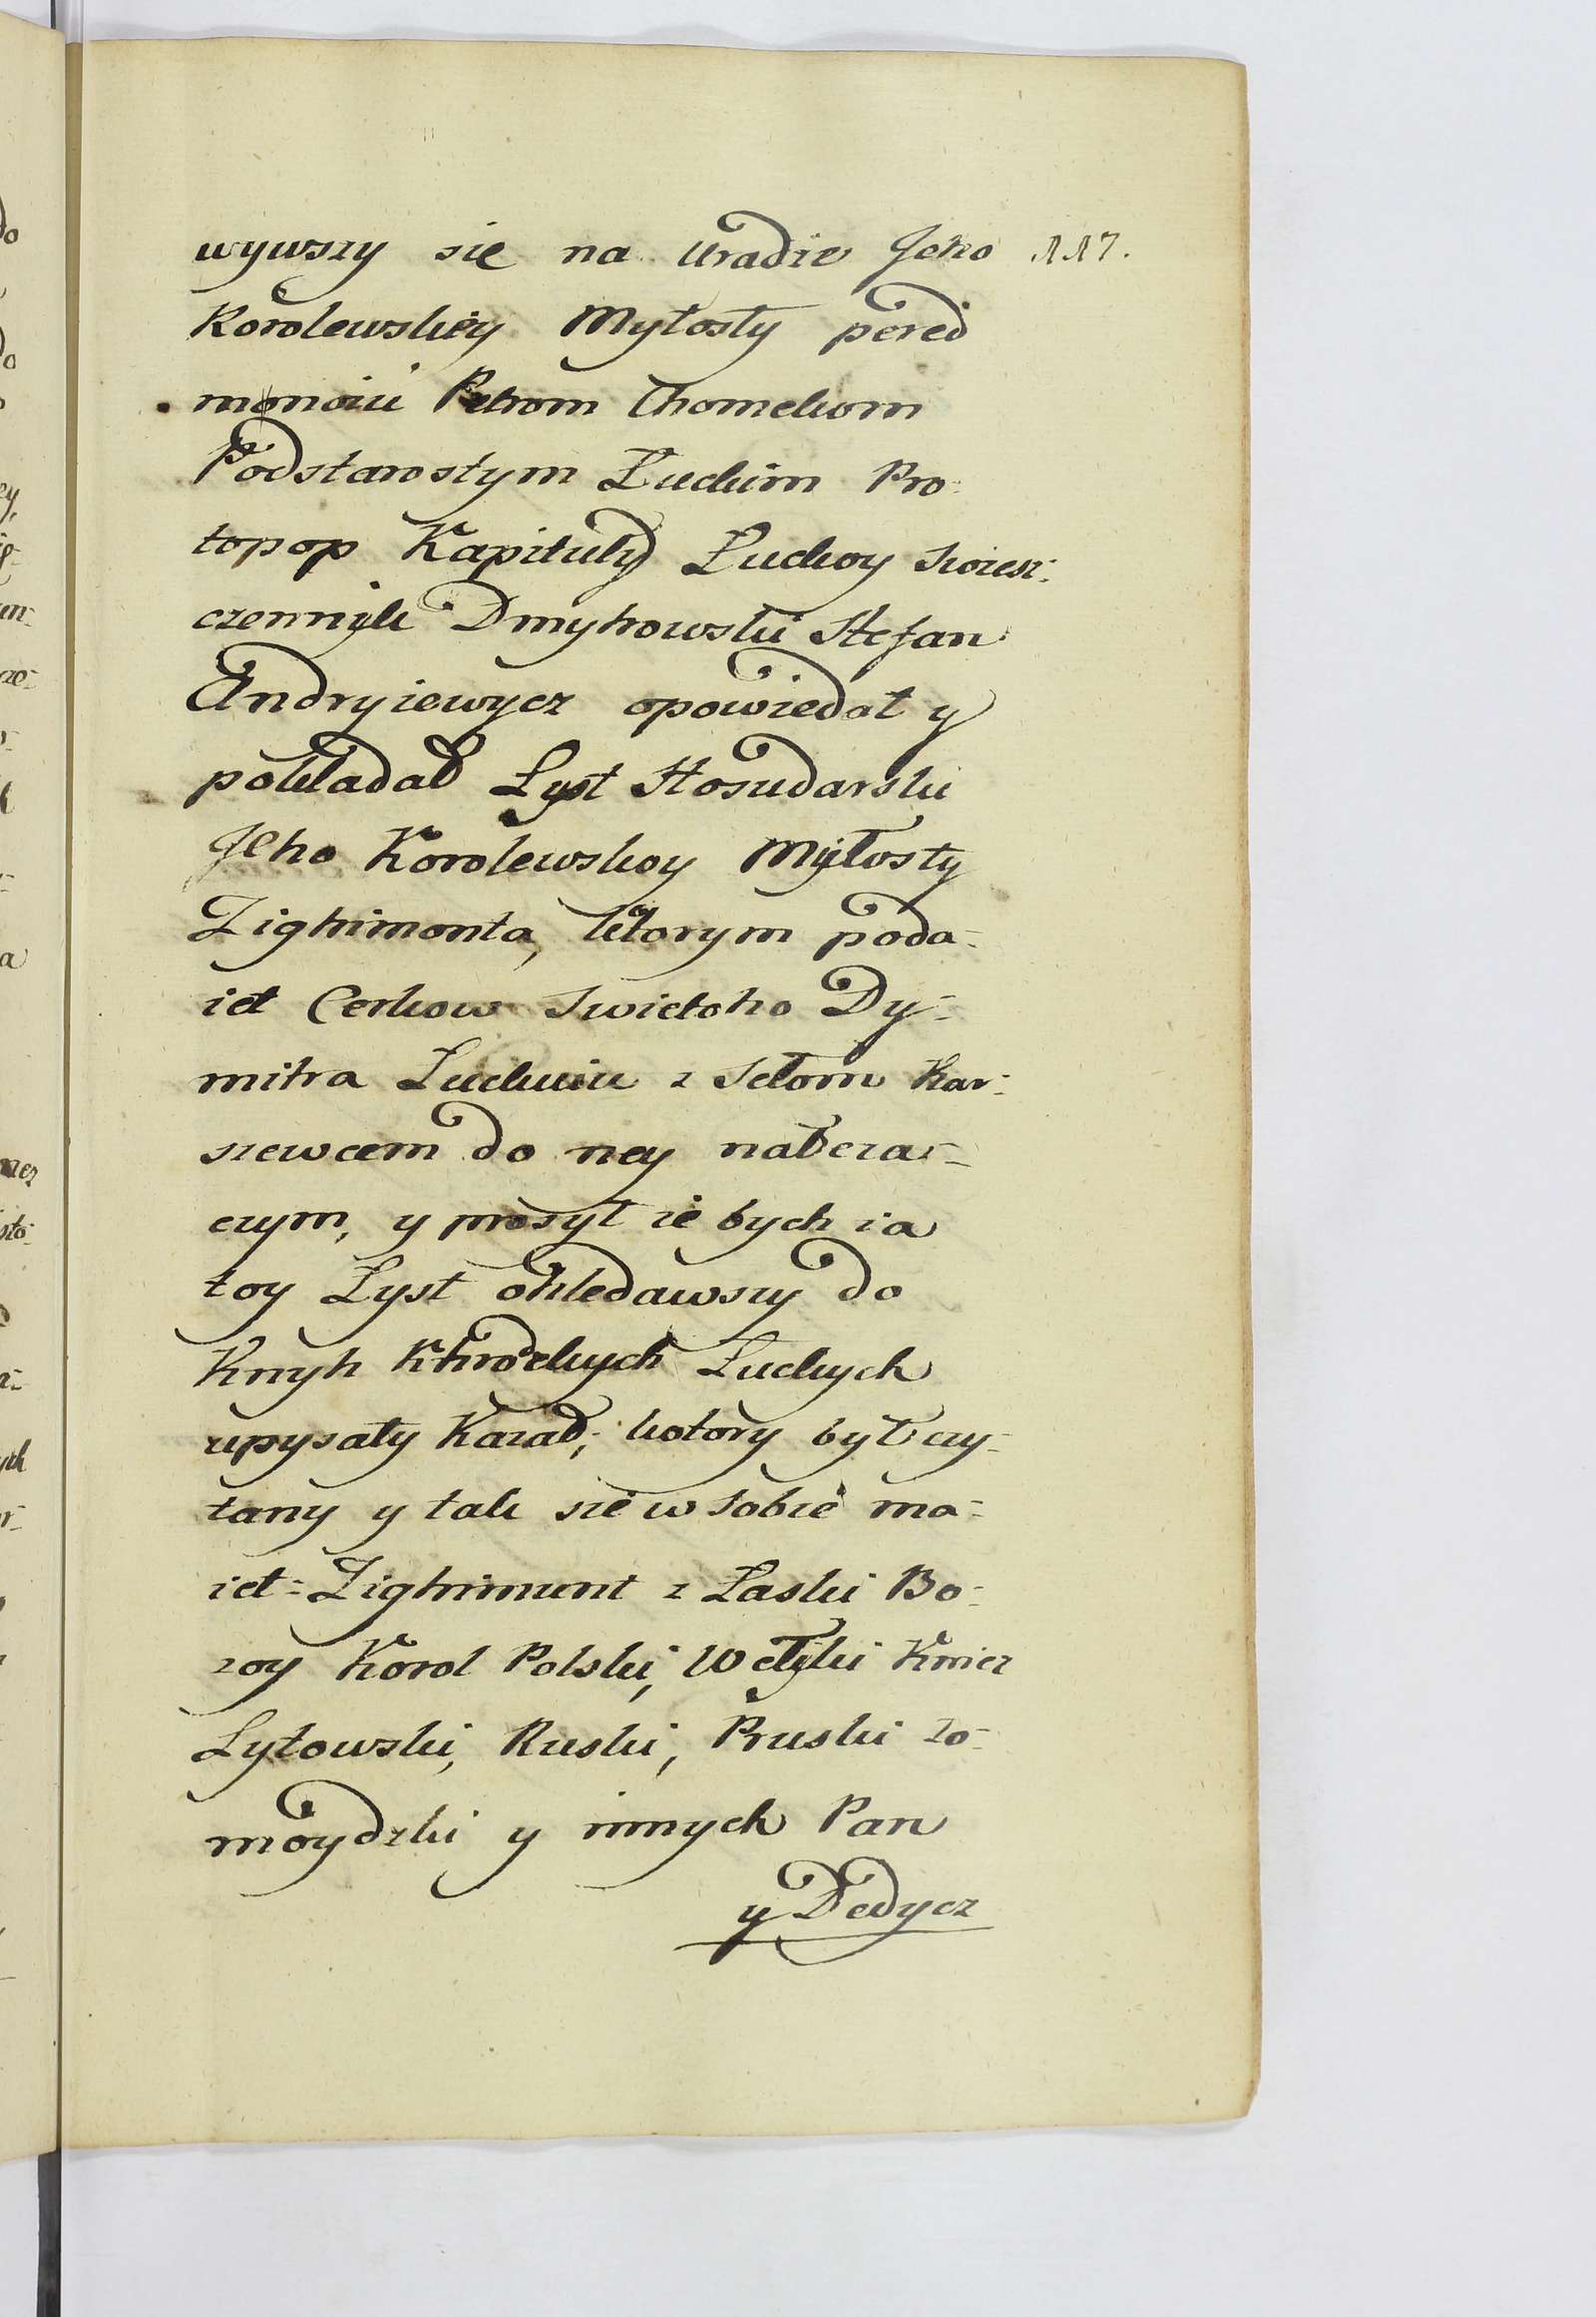 wywszy się na Uradie Jeho 117.
Korolewskiey Myłosty pered
mönoiu Petrom Chomekom
Podstarostym Łuckim Pro:
topop Kapituły Łuckoy Swiesz:
czennyk Dmytrowski Stefan
Andryiewycz opowiedał y
pokładał Lyst Hosudarski
Jeho Korolewskoy Myłosty
Zighimonta, którym poda-
iet Cerkow Swietoho Dy-
mitra Łuckuiu z Sełom Kar-
szewcem do ney nałeza-
czym, y prosył że bych ia
toy Lyst ohledawszy do
Knyh Khrodzkych Łuckych
upysaty Kazał; kotory był czy-
tany y tak sie w sobie ma-
iet: Zighimunt z Łaski Bo-
żoy Korol Polski, Wełyki Kniez
Lytowski, Ruski, Pruski żo-
moydzki y innych Pan
y Dedycz